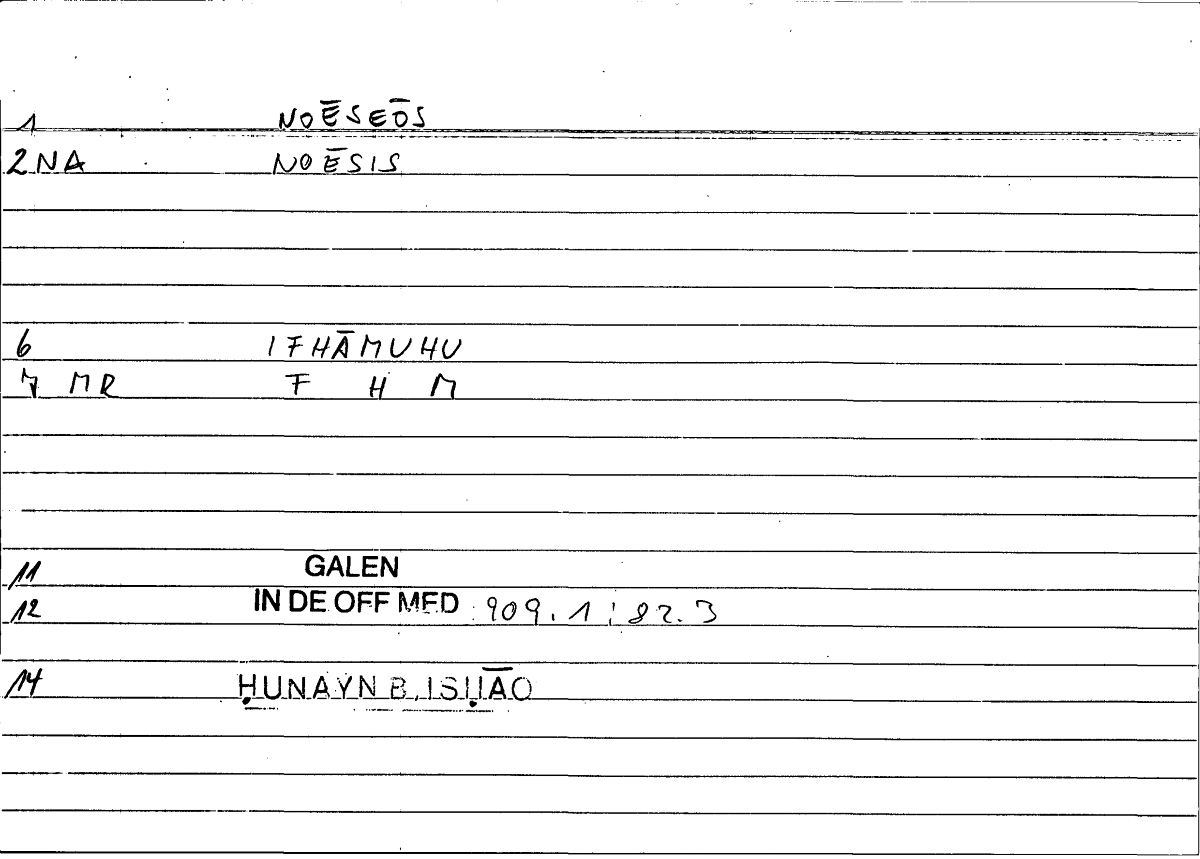 1 NOĒSEŌS
2 NA NOĒSIS
6 IFHĀMUHU
7 MR F H M
11 GALEN
12 IN DE OFF MED 909.1;82.3
14 ḤUNAYN B. ISḤĀQ